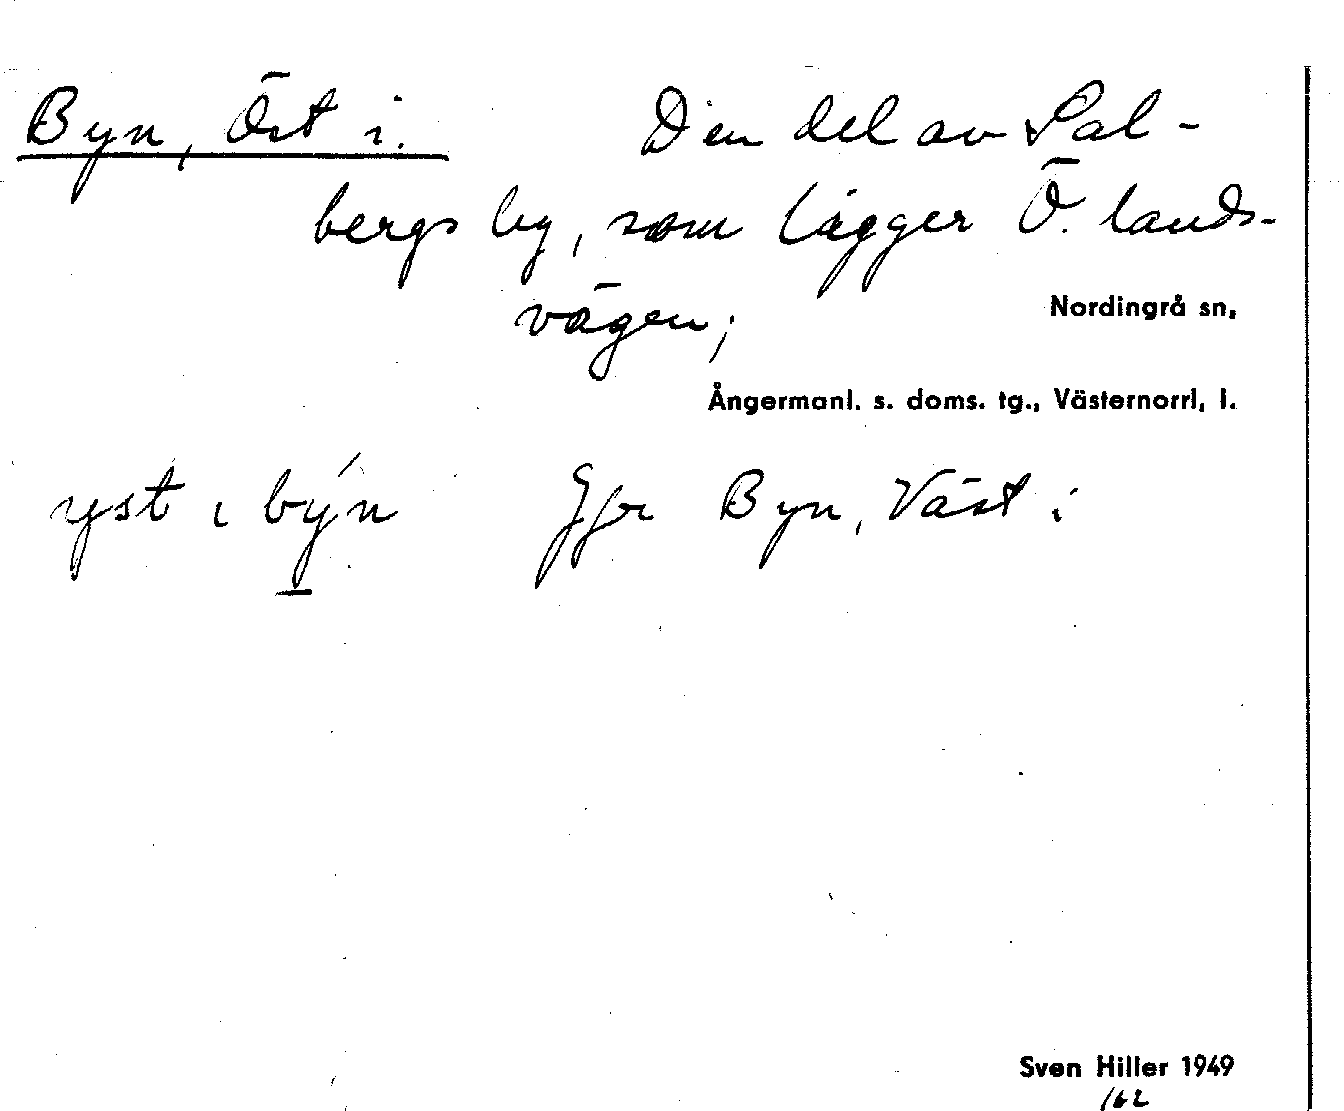 Byn, Öst i. Den del av Sal-
bergs by, som ligger Ö. lands-
vägen;
Nordingrå sn,
Ångermanl. s. doms. tg., Västernorrl, l.
yst i býn Jfr Byn, Väst i
Sven Hiller 1949
162